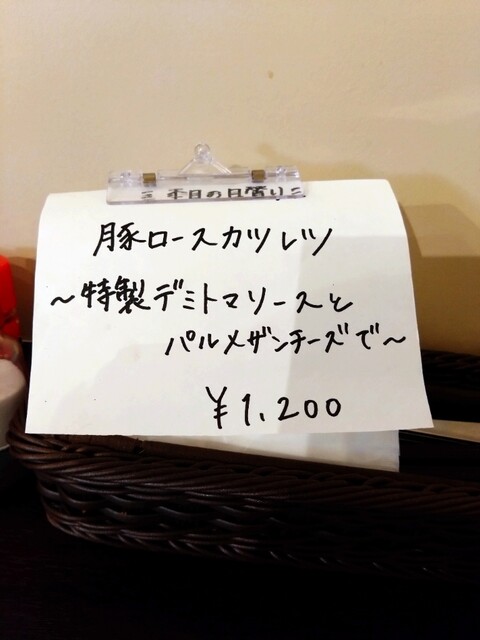 本日の日替り
豚ロースカツレツ
～特製デミトマソースと
パルメザンチーズで～
¥1,200